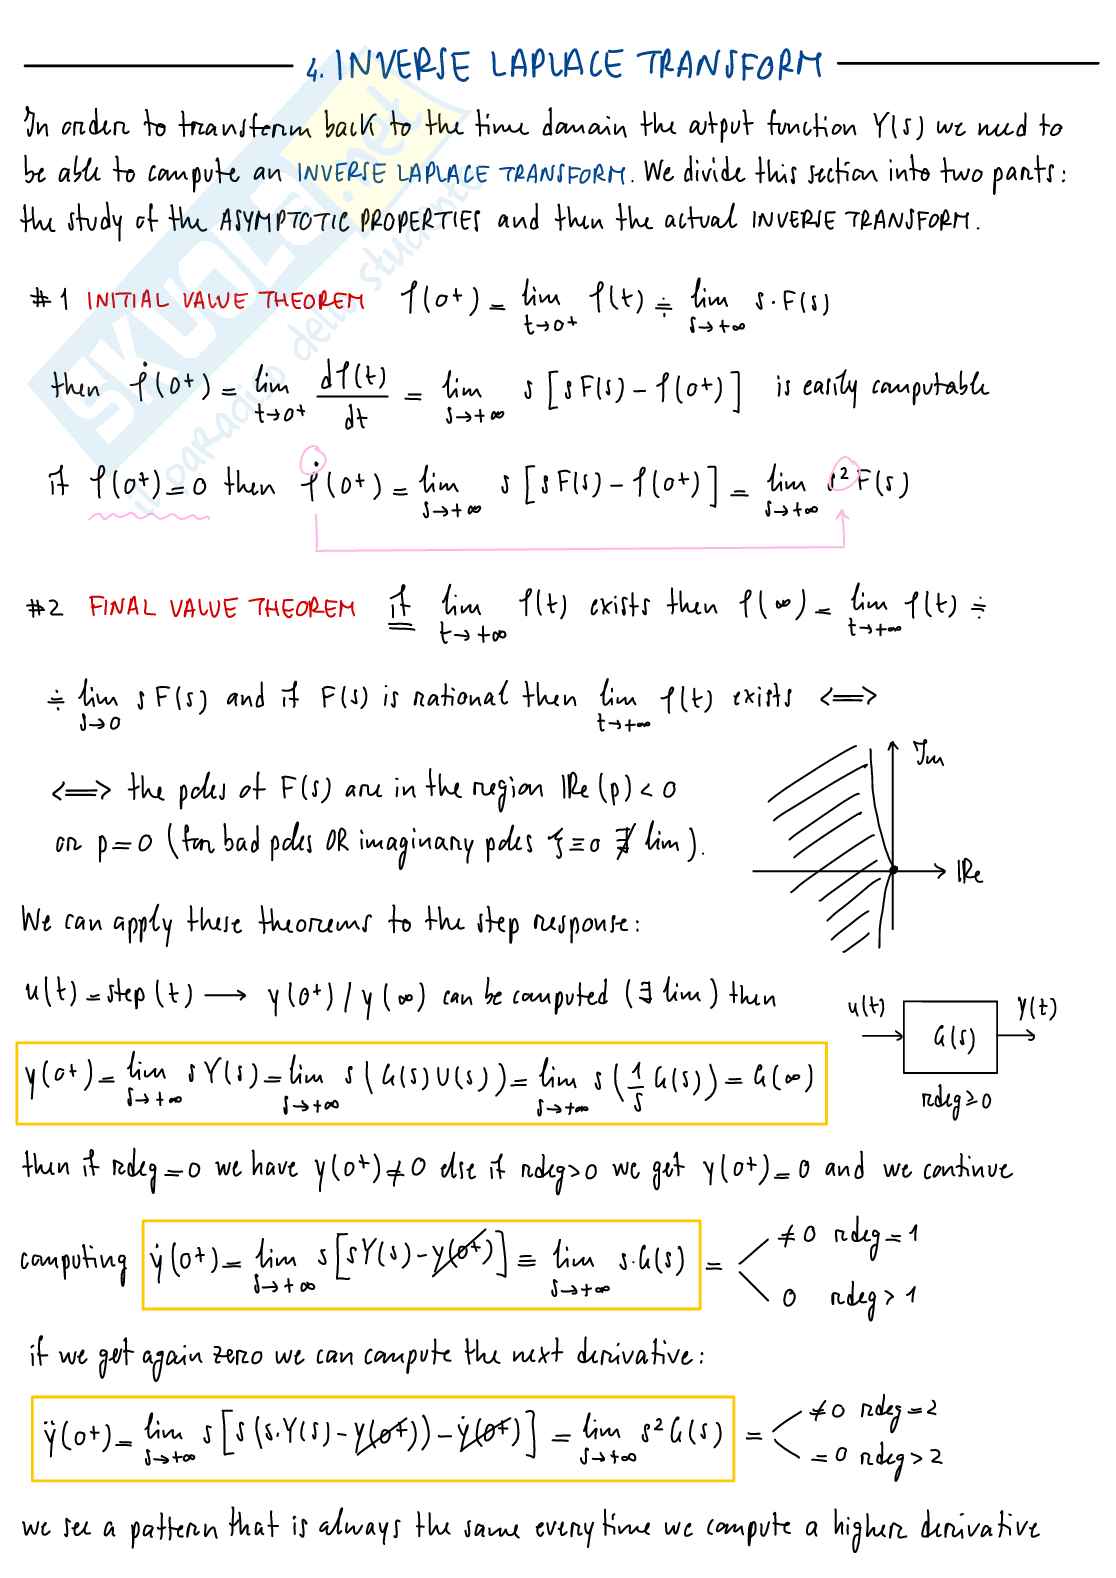 4. INVERSE LAPLACE TRANSFORM
In order to transform back to the time domain the output function Y(s) we need to
be able to compute an INVERSE LAPLACE TRANSFORM. We divide this section into two parts:
the study of the ASYMPTOTIC PROPERTIES and then the actual INVERSE TRANSFORM.
#1 INITIAL VALUE THEOREM f(0+) = lim t→0+ f(t) ≑ lim s→+∞ s·F(s)
then ḟ(0+) = lim t→0+ df(t)/dt = lim s→+∞ s[sF(s) − f(0+)] is easily computable
if f(0+) = 0 then ḟ(0+) = lim s→+∞ s[sF(s) − f(0+)] = lim s→+∞ s²F(s)
#2 FINAL VALUE THEOREM if lim t→+∞ f(t) exists then f(∞) = lim t→+∞ f(t) ≑
≑ lim s→0 sF(s) and if F(s) is rational then lim t→+∞ f(t) exists <=>
<=> the poles of F(s) are in the region Re(p) < 0
or p = 0 (for bad poles OR imaginary poles ξ ≡ 0 ∄ lim).
Im
Re
We can apply these theorems to the step response:
u(t) = step(t) → y(0+) / y(∞) can be computed (∃ lim) then
u(t) G(s) y(t)
rdeg ≥ 0
y(0+) = lim s→+∞ sY(s) = lim s→+∞ s(G(s)U(s)) = lim s→+∞ s(1/s G(s)) = G(∞)
then if rdeg = 0 we have y(0+) ≠ 0 else if rdeg > 0 we get y(0+) = 0 and we continue
computing ẏ(0+) = lim s→+∞ s[sY(s) − y(0+)] = lim s→+∞ s·G(s) =
≠ 0 rdeg = 1
0 rdeg > 1
if we get again zero we can compute the next derivative:
ÿ(0+) = lim s→+∞ s[s(s·Y(s) − y(0+)) − ẏ(0+)] = lim s→+∞ s²G(s) =
≠ 0 rdeg = 2
= 0 rdeg > 2
we see a pattern that is always the same every time we compute a higher derivative
SKUOLA.net
il paradiso dello studente